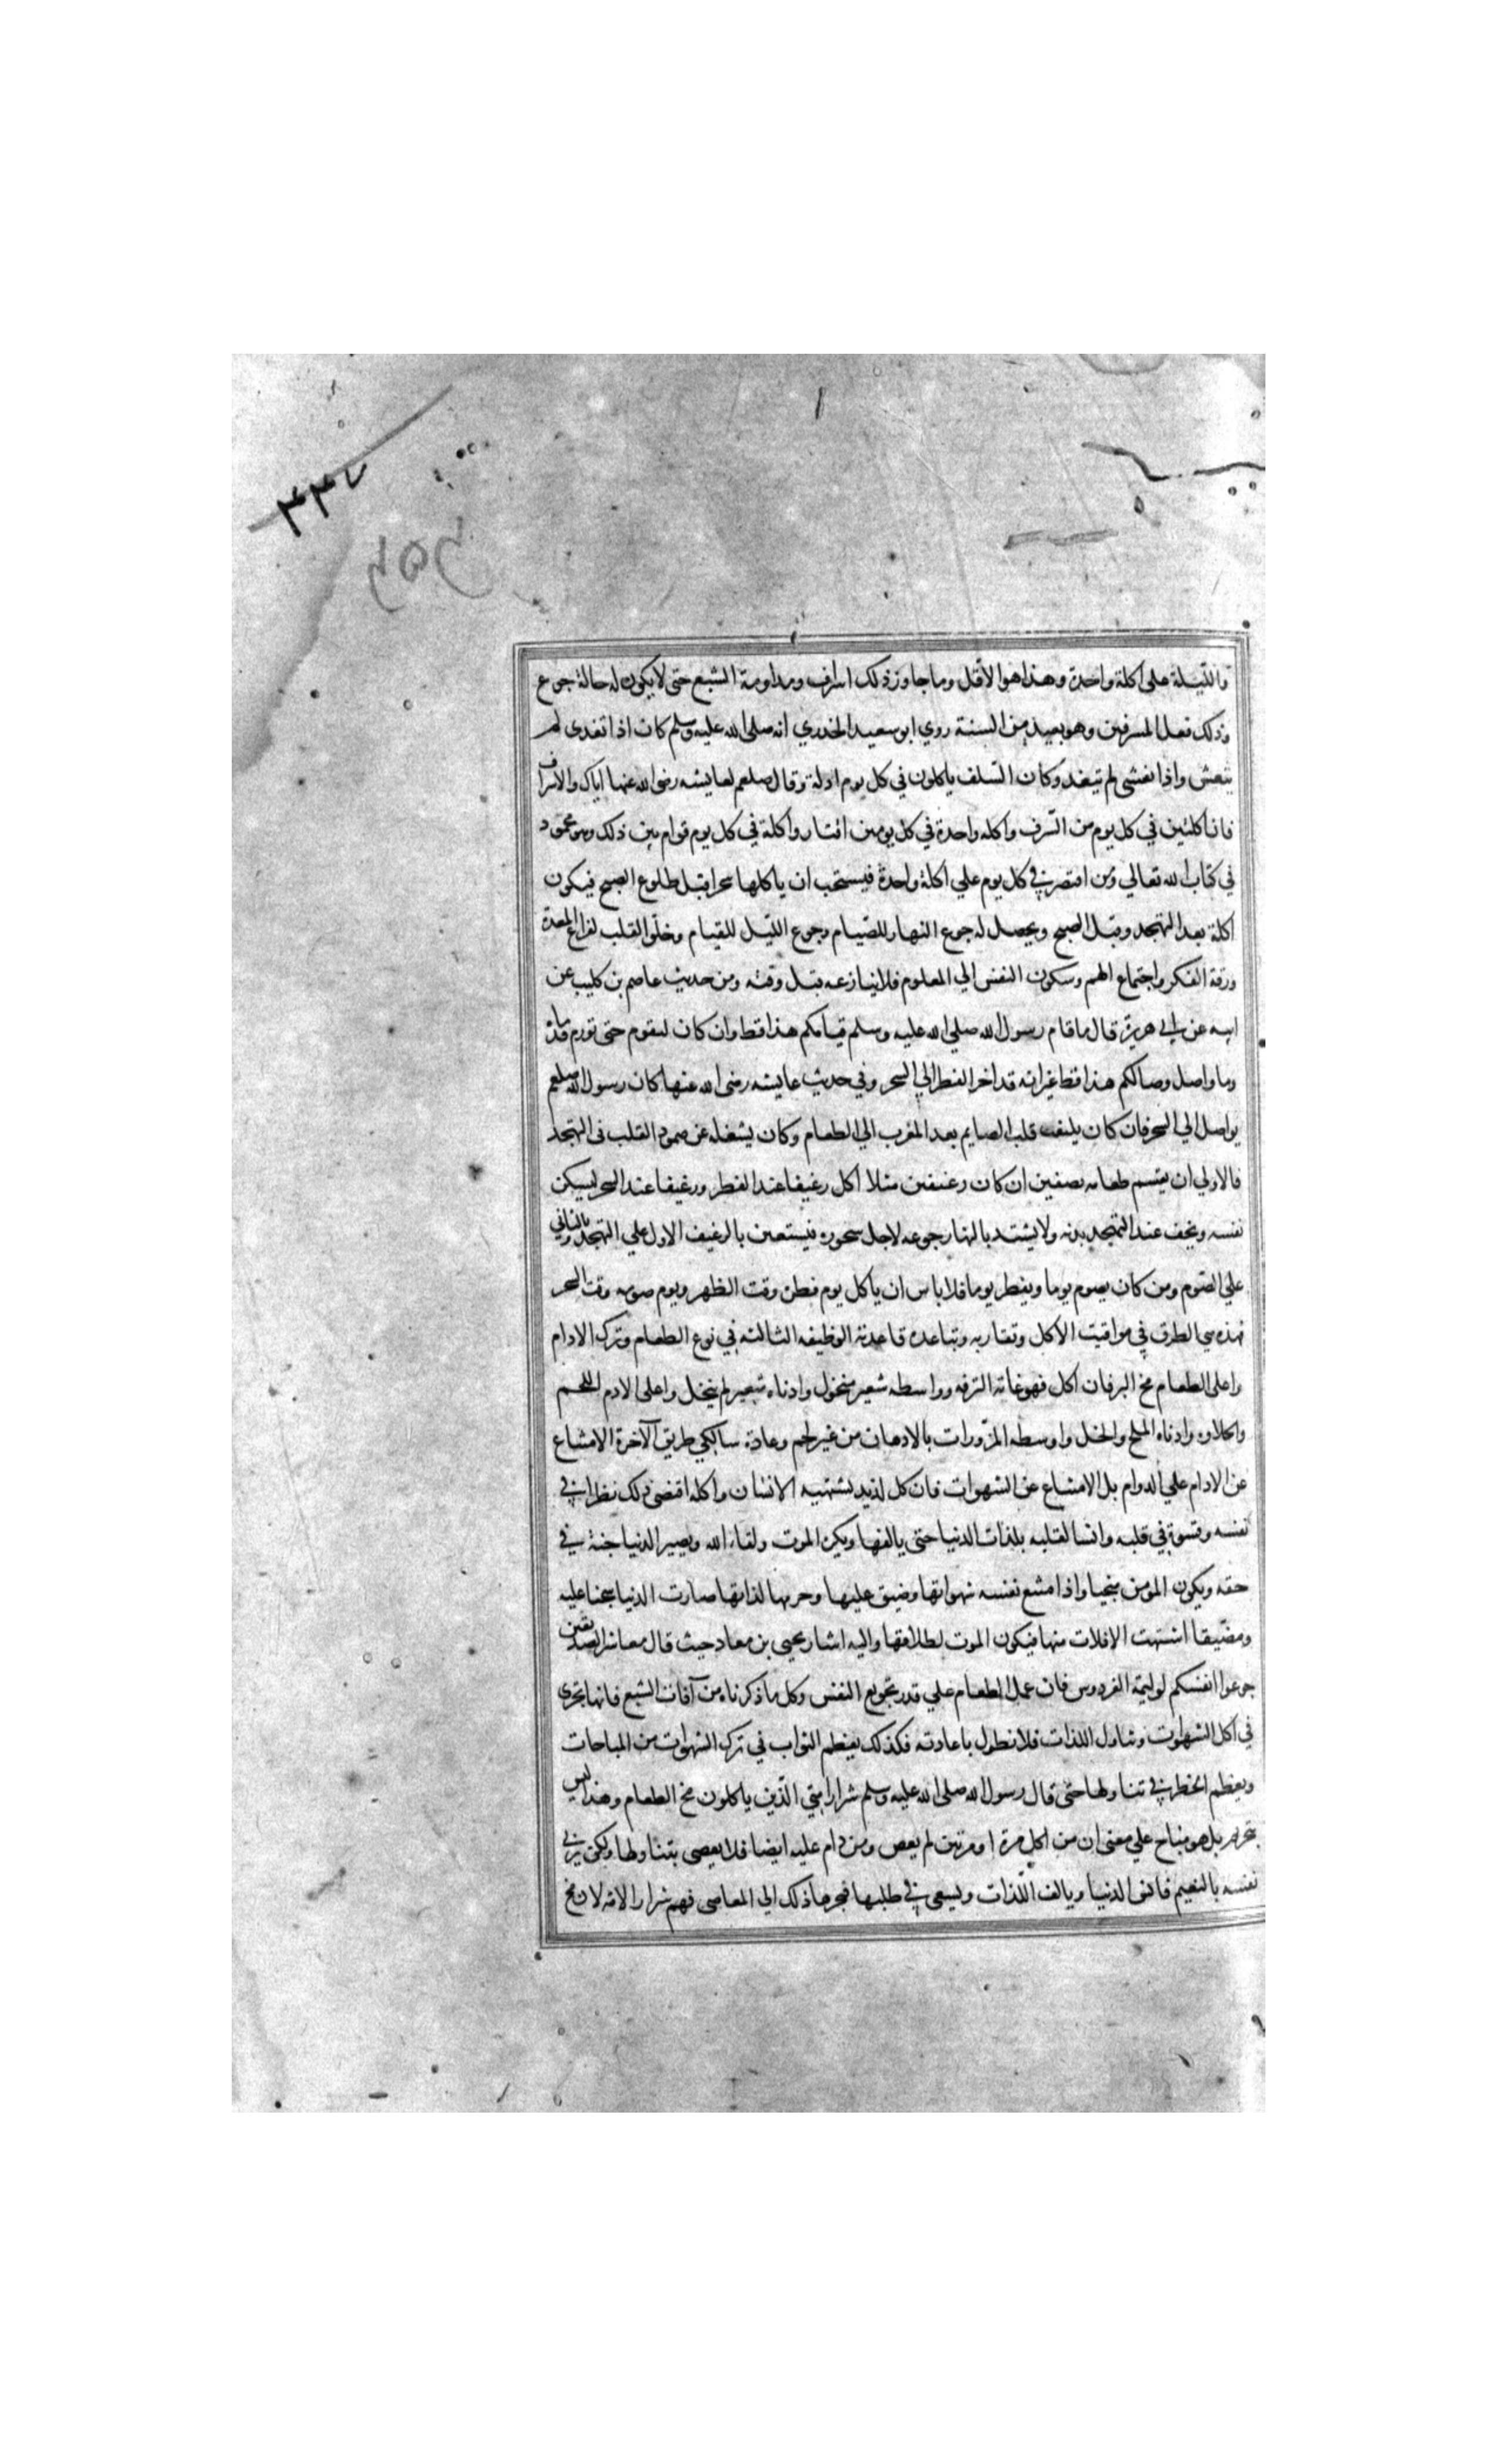 ٣٣٧
والليلة على اكلة واحدة وهذا هو الاقل وما جاوز ذلك اسراف ومداومة الشبع حتى لا يكون له حالة جوع
وذلك فعل المسرفين وهو بعيد من السنة روي ابو سعيد الخدري انه صلى الله عليه وسلم كان اذا تغدى لم
يتعش واذا تعشى لم يتغد وكان السلف ياكلون في كل يوم اكلة وقال صلعم لعايشه رضى الله عنها اياك والاسراف
فان اكلتين في كل يوم من السرف واكله واحدة في كل يومين اقتار واكلة في كل يوم قوام بين ذلك وهو محمود
في كتاب الله تعالي ومن اقتصر في كل يوم علي اكلة واحدة فيستحب ان ياكلها سحرا قبل طلوع الصبح فيكون
اكلة بعد التهجد وقبل الصبح ويحصل له جوع النهار للصيام وجوع الليل للقيام وخلو القلب لفراغ المعدة
ورقة الفكر واجتماع الهم وسكون النفس الي المعلوم فلا ينازعه قبل وقته ومن حديث عاصم بن كليب عن
ابيه عن ابي هريرة قال ما قام رسول الله صلي الله عليه وسلم قيامكم هذا قط وان كان ليقوم حتى تورم قدماه
وما واصل وصالكم هذا قط غير انه قد اخر الفطر الي السحر وفي حديث عايشه رضى الله عنها كان رسول الله صلعم
يواصل الي السحر فان كان يلتفت قلب الصايم بعد المغرب الي الطعام وكان يشغله عن حضور القلب فى التهجد
فالاولي ان يقسم طعامه نصفين ان كان رغيفين مثلا اكل رغيفا عند الفطر ورغيفا عند السحر ليسكن
نفسه ويخف عند التهجد بدنه ولا يشتد بالنهار جوعه لاجل سحوره فيستعين بالرغيف الاول علي التهجد وبالثاني
علي الصوم ومن كان يصوم يوما ويفطر يوما فلا باس ان ياكل يوم فطره وقت الظهر ويوم صومه وقت السحر
فهذه هي الطرق في مواقيت الاكل وتقاربه وتباعده قاعدته الوظيفه الثالثه في نوع الطعام وترك الادام
واعلى الطعام مخ البر فان اكل فهو غاية الترفه وواسطه شعير منخول وادناه شعير لم ينخل واعلى الادم اللحم
والحلاوه وادناه الملح والخل واوسطه المزورات بالادهان من غير لحم وعادة سالكي طريق الآخرة الامتناع
عن الادام علي الدوام بل الامتناع عن الشهوات فان كل لذيذ يشتهيه الانسان واكله اقتضى ذلك بطرا في
نفسه وقسوة في قلبه وانسا لقلبه بلذات الدنيا حتى يالفها ويكره الموت ولقاء الله ويصير الدنيا جنة في
حقه ويكون الموت سجنا واذا منع نفسه شهواتها وضيق عليها وحرمها لذاتها صارت الدنيا سجنا عليه
ومضيقا اشتهت الافلات منها فيكون الموت اطلاقها واليه اشار يحيى بن معاذ حيث قال معاشر الصديقين
جوعوا انفسكم لوليمة الفردوس فان عمل الطعام علي قدر تجويع النفس وكل ما ذكرناه من آفات الشبع فانها تجرى
في اكل الشهوات وتناول اللذات فلا نطول باعادته فكذلك يعظم الثواب في ترك الشهوات من المباحات
ويعظم الخطر في تناولها حتى قال رسول الله صلى الله عليه وسلم شرار امتي الذين ياكلون مخ الطعام وهذا ليس
بتحريم بل هو مباح علي معنى ان من اكل مرة او مرتين لم يعص ومن دام عليه ايضا فلا يعصى بتناولها ولكن يربى
نفسه بالنعيم فانس الدنيا ويالف اللذات ويسعى في طلبها فيجرها ذلك الي المعاصى فهم شرار الامة لان مخ